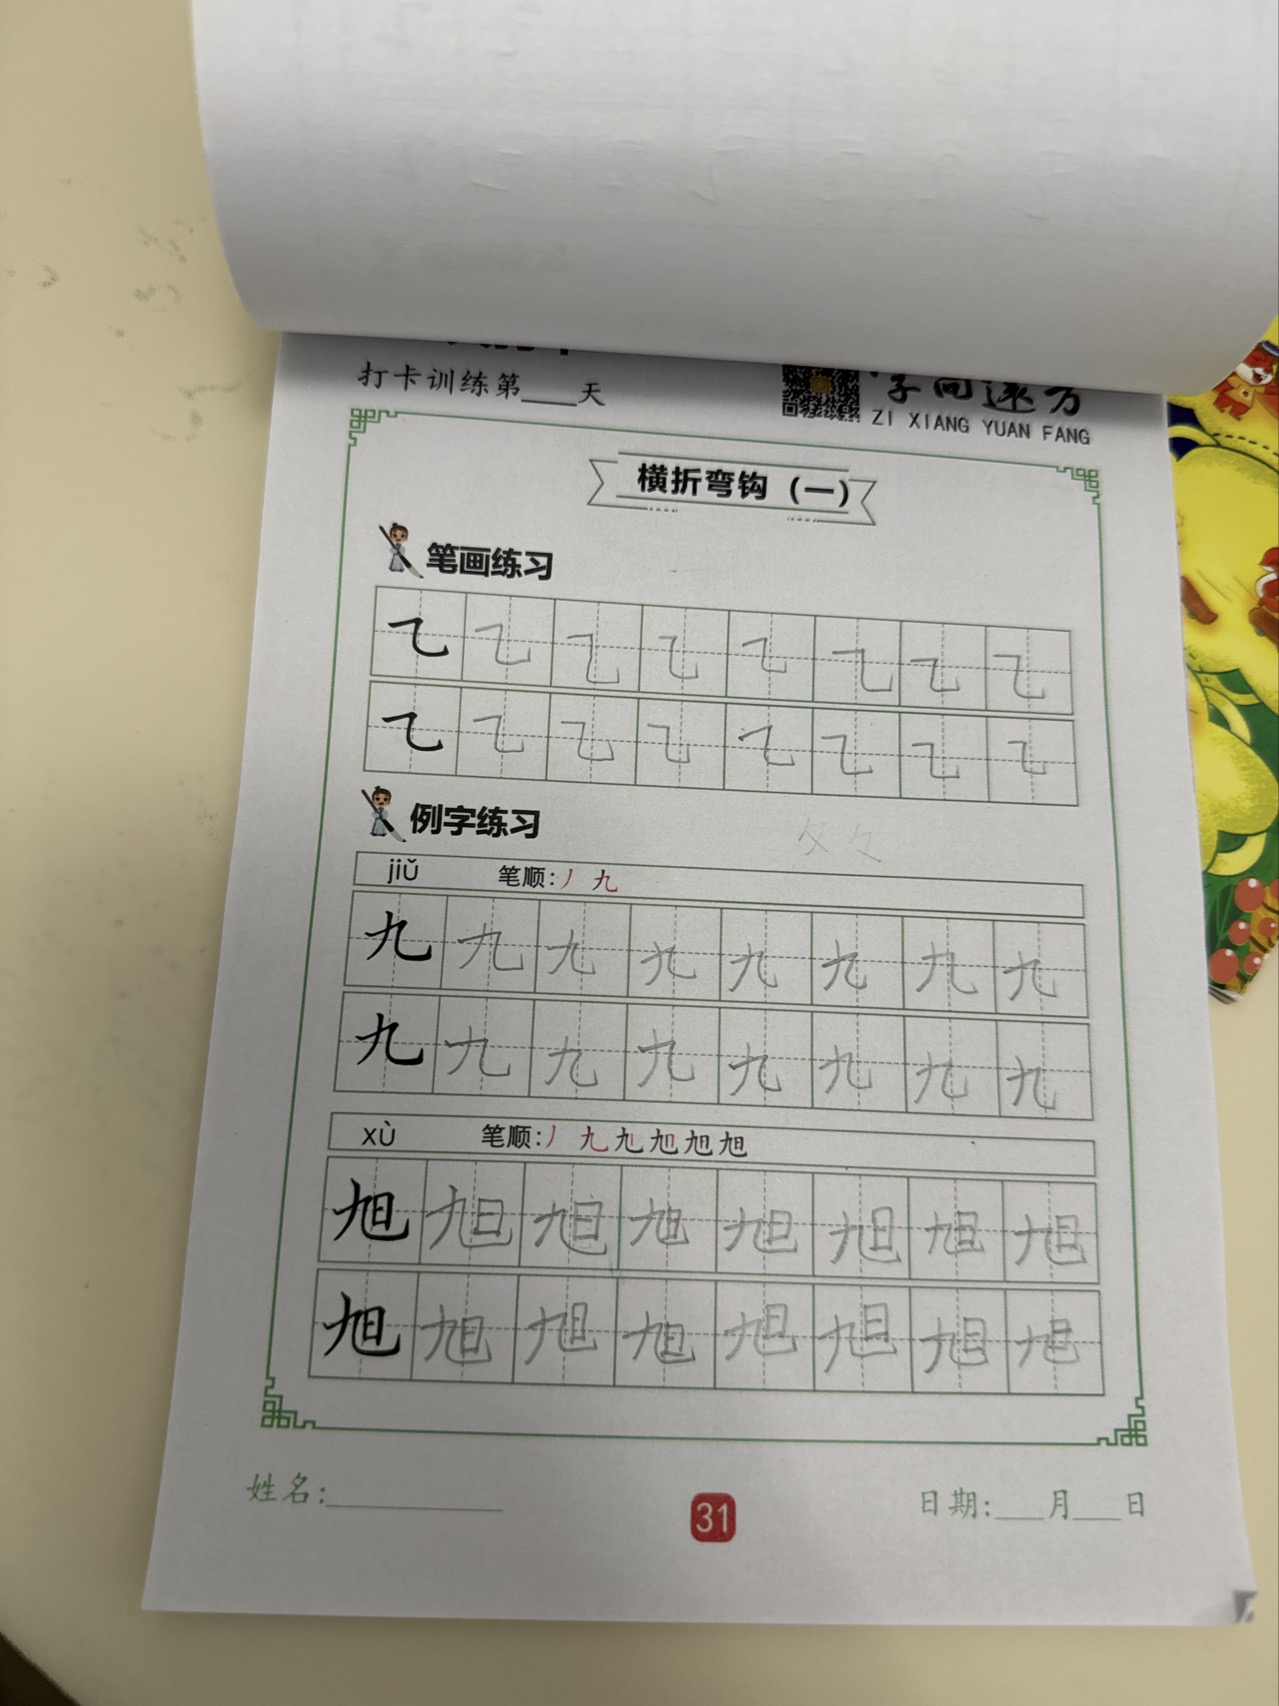 打卡训练第____天
字间远方
ZI XIANG YUAN FANG
横折弯钩（一）
笔画练习
㇈ ㇈ ㇈ ㇈ ㇈ ㇈ ㇈ ㇈
㇈ ㇈ ㇈ ㇈ ㇈ ㇈ ㇈ ㇈
例字练习
jiǔ 笔顺:丿 九
九 九 九 九 九 九 九 九
九 九 九 九 九 九 九 九
xù 笔顺:丿 九 旭 旭 旭 旭
旭 旭 旭 旭 旭 旭 旭 旭
旭 旭 旭 旭 旭 旭 旭 旭
姓名:__________
31
日期:___月___日